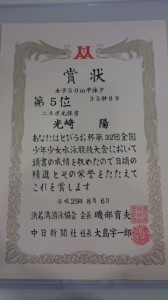 賞状
女子50m平泳ぎ
第5位 35秒89
ニスポ光任者
光崎 陽
あなたはとびうお杯第32回全国
少年少女水泳競技大会において
頭書の成績を収めたので日頃の
精進とその栄誉をたたえて
これを賞します
平成29年8月6日
浜名湾游泳協会 会長 磯部育夫
中日新聞社 社長 大島宇一郎